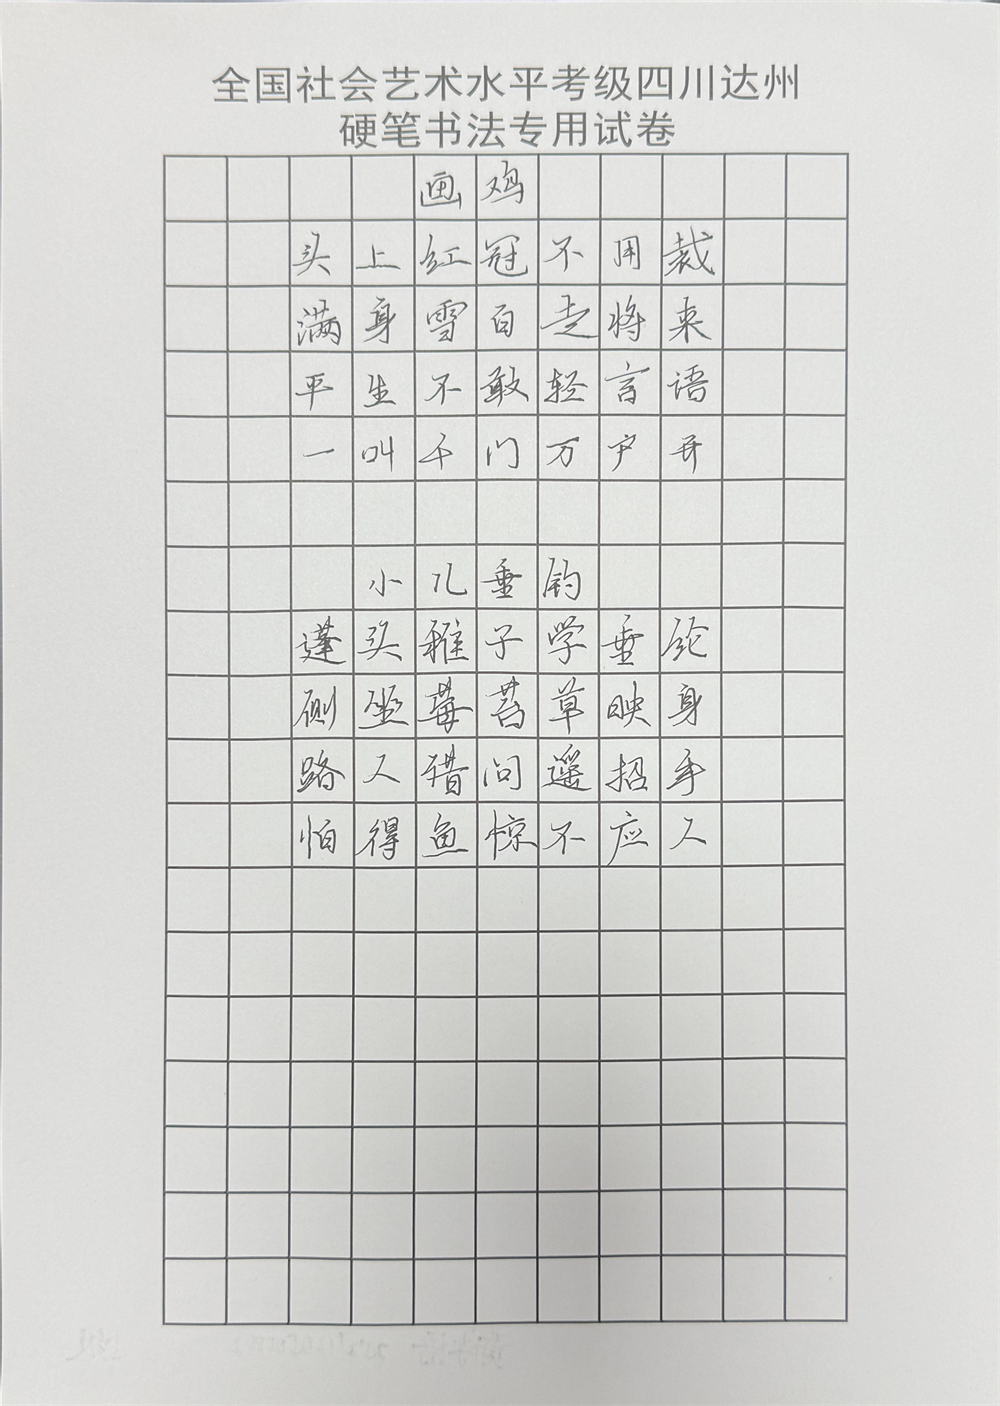 全国社会艺术水平考级四川达州
硬笔书法专用试卷
画鸡
头上红冠不用裁
满身雪白走将来
平生不敢轻言语
一叫千门万户开
小儿垂钓
蓬头稚子学垂纶
侧坐莓苔草映身
路人借问遥招手
怕得鱼惊不应人